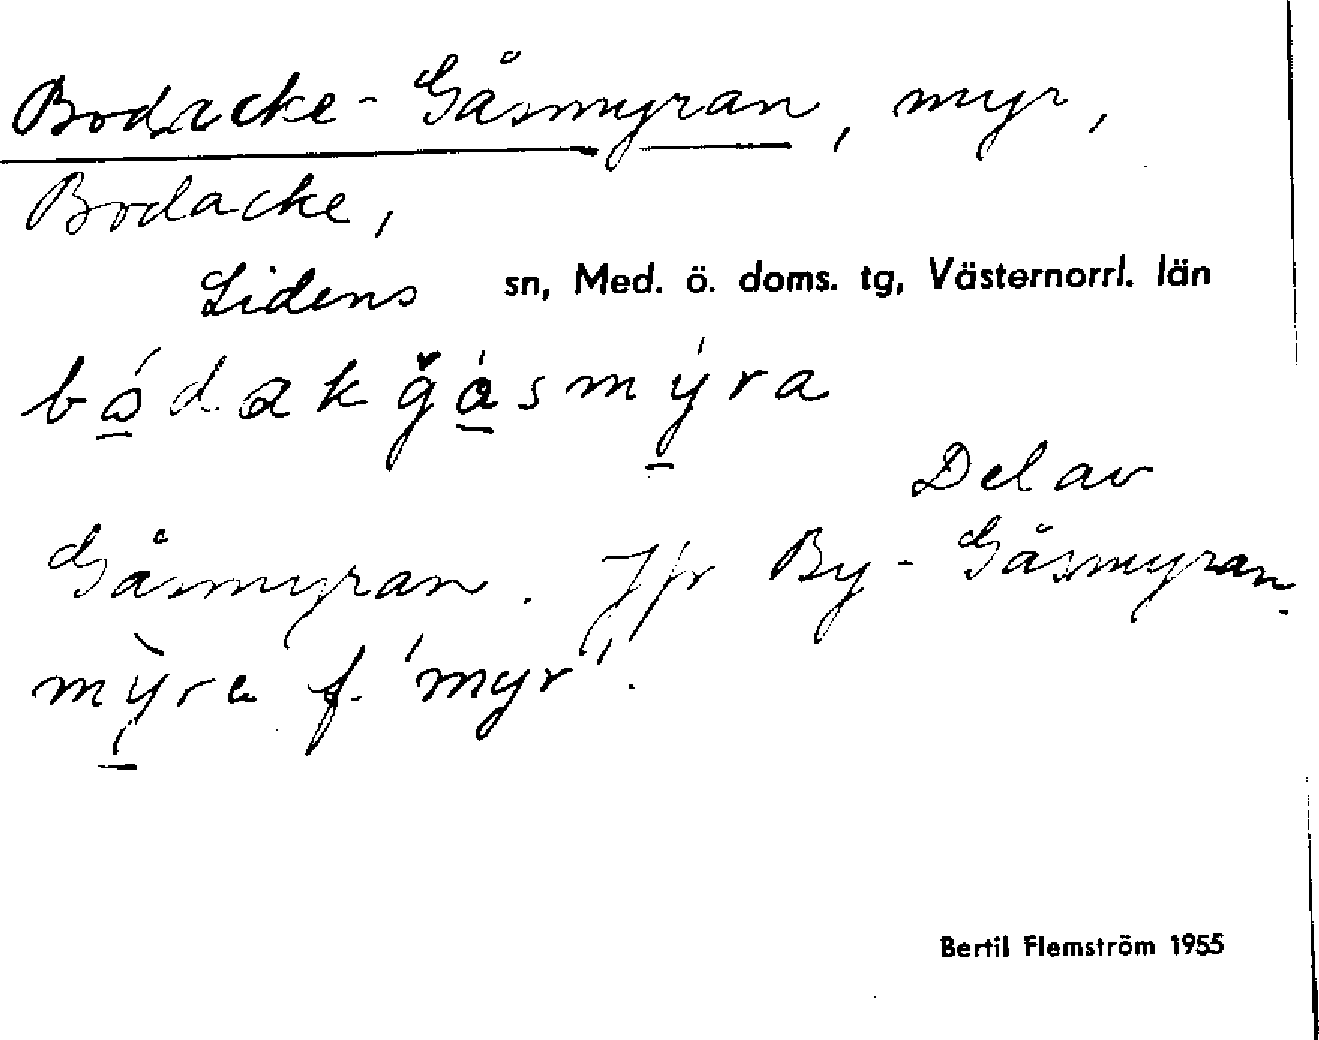 Bodacke-Gåsmyran, myr,
Bodacke,
Lidens sn, Med. ö. doms. tg, Västernorrl. län
bó̲dakǧa̲̍smy̲̍ra
Del av
Gåsmyran. Jfr By-Gåsmyran.
mỳ̲ra f. 'myr'.
Bertil Flemström 1955